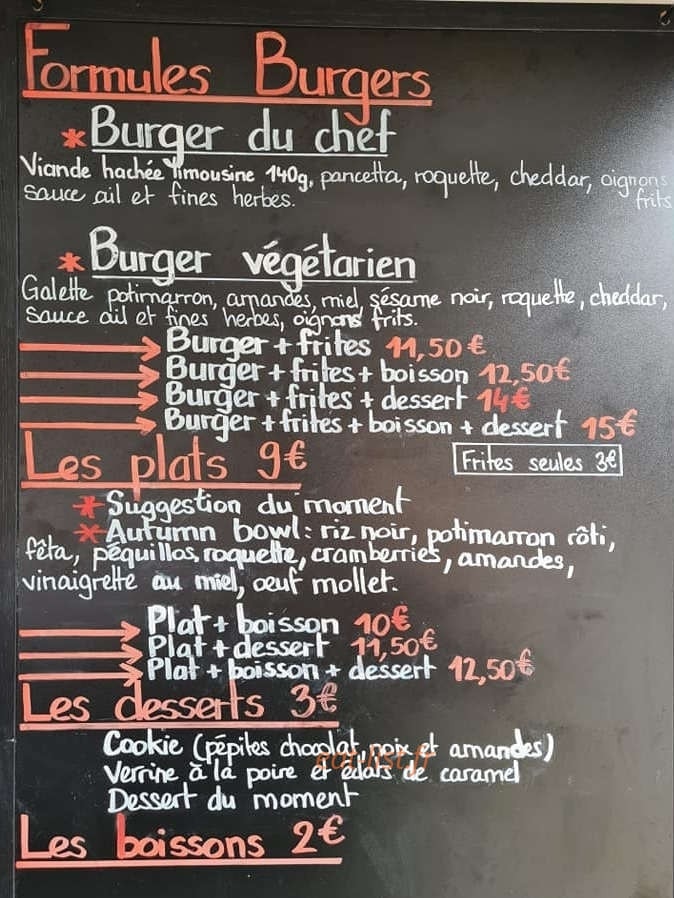 Formules Burgers
* Burger du chef
Viande hachée limousine 140g, pancetta, roquette, cheddar, oignons
sauce ail et fines herbes. frits
* Burger végétarien
Galette potimarron, amandes, miel, sésame noir, roquette, cheddar,
sauce ail et fines herbes, oignons frits.
Burger + frites 11,50€
Burger + frites + boisson 12,50€
Burger + frites + dessert 14€
Burger + frites + boisson + dessert 15€
Les plats 9€
Frites seules 3€
* Suggestion du moment
* Autumn bowl: riz noir, potimarron rôti,
fêta, péquillos, roquette, cramberries, amandes,
vinaigrette au miel, œuf mollet.
Plat + boisson 10€
Plat + dessert 11,50€
Plat + boisson + dessert 12,50€
Les desserts 3€
Cookie (pépites chocolat, noix et amandes)
eat-list.fr
Verrine à la poire et éclats de caramel
Dessert du moment
Les boissons 2€